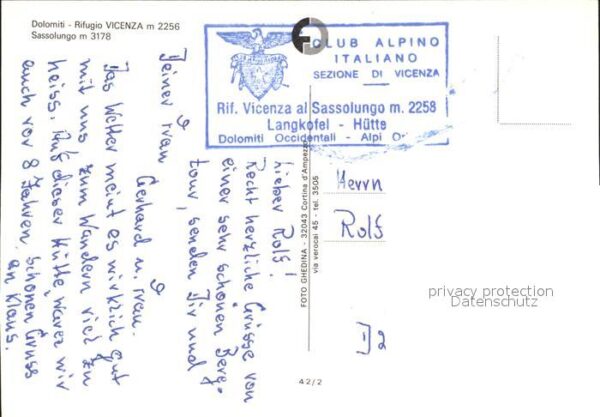 Dolomiti - Rifugio VICENZA m 2256
Sassolungo m 3178
CLUB ALPINO
ITALIANO
SEZIONE DI VICENZA
Rif. Vicenza al Sassolungo m. 2258
Langkofel - Hütte
Dolomiti Occidentali - Alpi
Lieber Rolf!
Recht herzliche Grüsse von
einer sehr schönen Berg-
tour, senden Dir und
Deiner Frau
Gerhard u. Frau.
Das Wetter meint es wirklich gut
mit uns zum Wandern viel zu
heiss. Auf dieser Hütte waren wir
auch vor 8 Jahren, schönen Gruss
an Klaus.
Herrn
Rolf
D 2
FOTO GHEDINA - 32043 Cortina d'Ampezzo
via verocai 45 - tel. 3505
42/2
privacy protection
Datenschutz